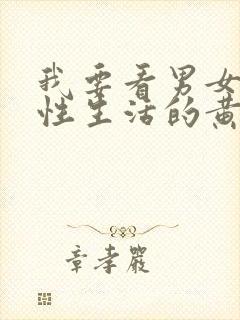 我要看男女
性生活的黄
章孝严